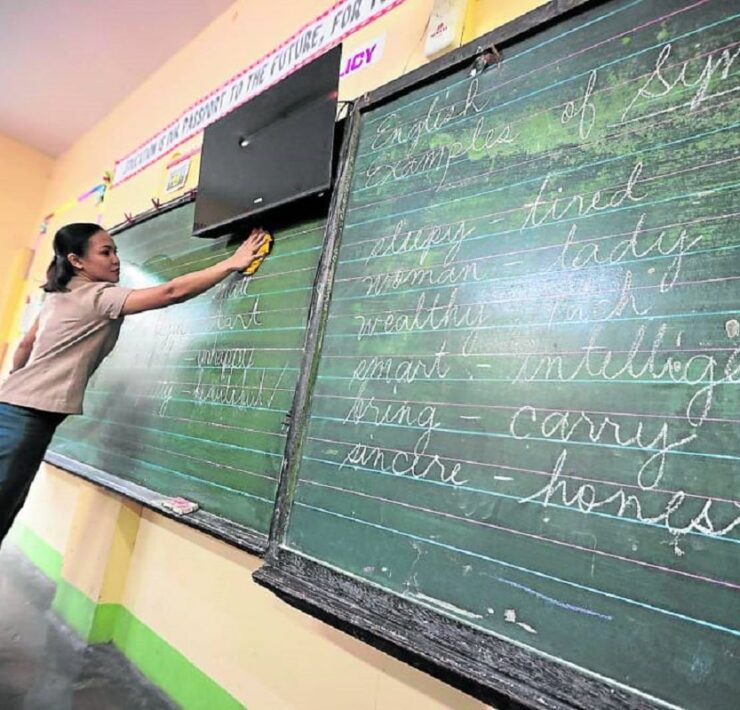 EDUCATION IS OUR PASSPORT TO THE FUTURE, FOR TO
LICY
English
Examples of Syn
sleepy - tired
woman lady
wealthy rich
smart - intellige
bring - carry
sincere - hones
start
- unhappy
beautiful